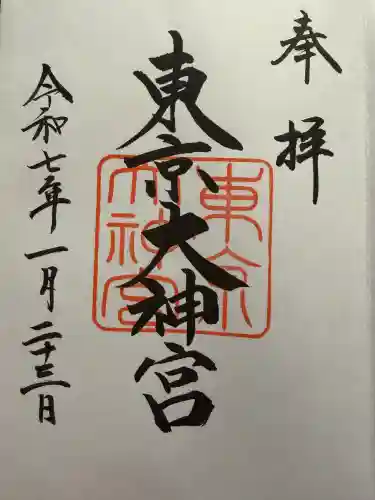 奉拝
東京大神宮
東京大神宮
令和七年一月二十三日